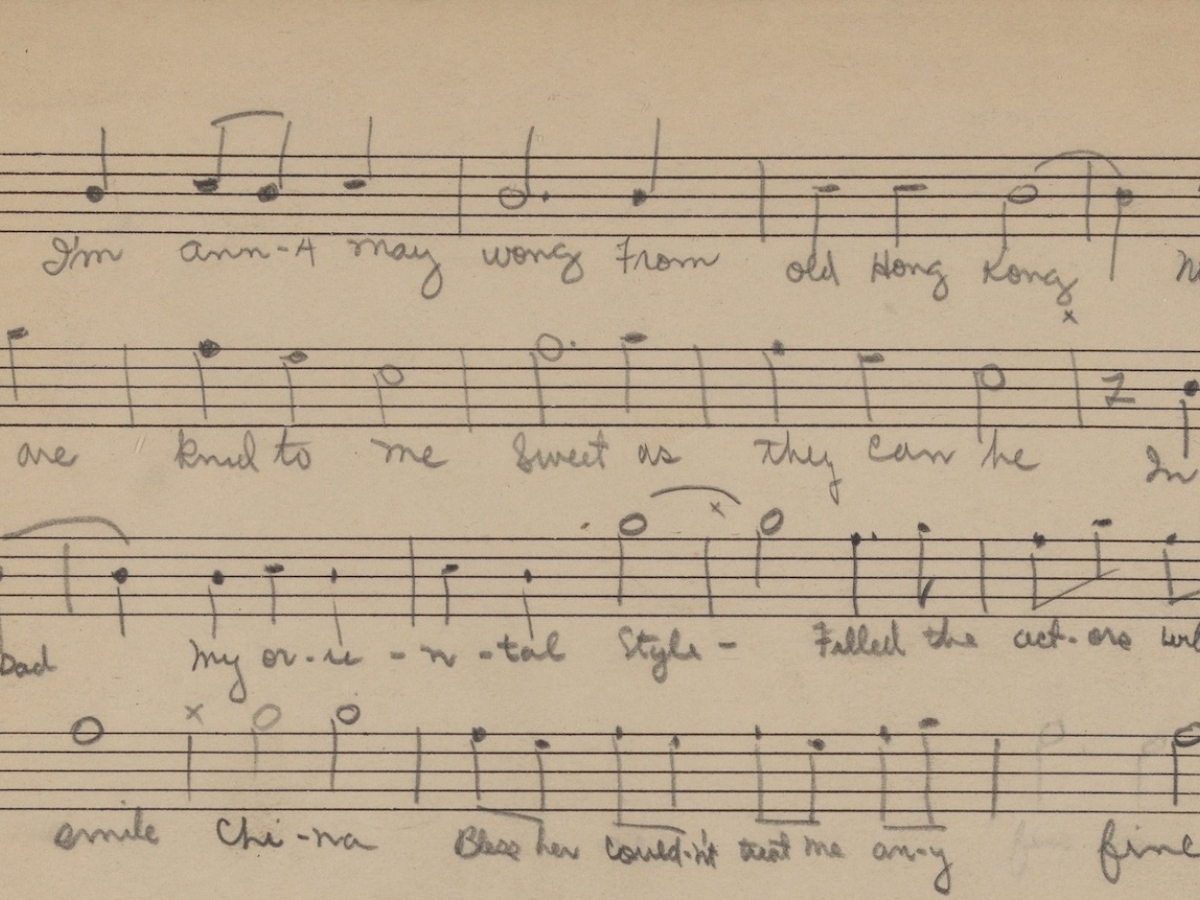 I'm Ann-A may wong From old Hong Kong
are kind to me Sweet as They can be In
Bad My or-ie-n-tal Style- Filled the act-ors
smile Chi-na Bless her could-n't treat me an-y fine